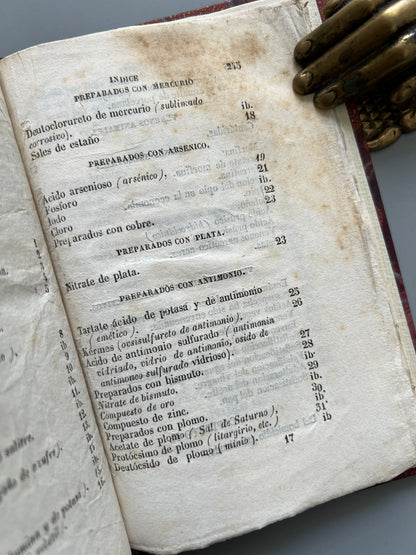 INDICE 245
PREPARADOS CON MERCURIO
Deutoclorureto de mercurio (sublimado
corrosivo). ib.
Sales de estaño 18
PREPARADOS CON ARSENICO.
Acido arsenioso (arsénico). 19
Fosforo 21
Iodo ib.
Cloro 22
Preparados con cobre. 23
PREPARADOS CON PLATA.
Nitrate de plata. 23
PREPARADOS CON ANTIMONIO.
Tartate ácido de potasa y de antimonio
(emético). 25
Kérmes (oxisulfureto de antimonio). 26
Acido de antimonio sulfurado (antimonia
vitriado, vidrio de antimonio, osido de
antimonos sulfurado vidrioso). 27
Preparados con bismuto. 28
Nitrate de bismuto. ib.
Compuesto de oro 29
Compuesto de zinc. ib.
Preparados con plomo. 30
Acetate de plomo (Sal. de Saturno). ib.
Protócsimo de plomo (litargirio, etc.) 31
Deutócsido de plomo (minio). ib
17